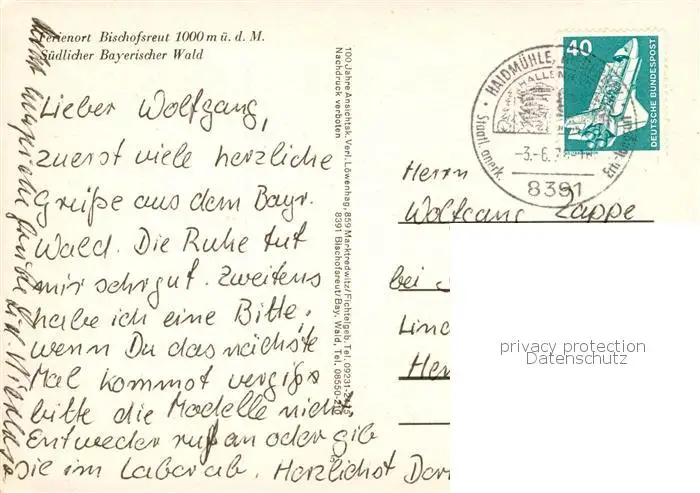 Ferienort Bischofsreut 1000 m ü. d. M.
Südlicher Bayerischer Wald
Lieber Wolfgang,
zuerst viele herzliche
Grüße aus dem Bayr.
Wald. Die Ruhe tut
mir sehr gut. Zweitens
habe ich eine Bitte,
wenn Du das nächste
Mal kommst vergiss
bitte die Modelle nicht.
Entweder ruf an oder gib
sie im Labor ab. Herzlichst
100 Jahre Ansichtsk. Verl. Löwenhag, 859 Marktredwitz/Fichtelgeb. Tel. 09231-2415
Nachdruck verboten
8391 Bischofsreut/Bay. Wald, Tel. 08550-210
40
DEUTSCHE BUNDESPOST
HAIDMÜHLE,
HALLEN
Staatl. anerk.
-3.-6.
8391
Herrn
Wolfgang Zappe
bei
privacy protection
Datenschutz